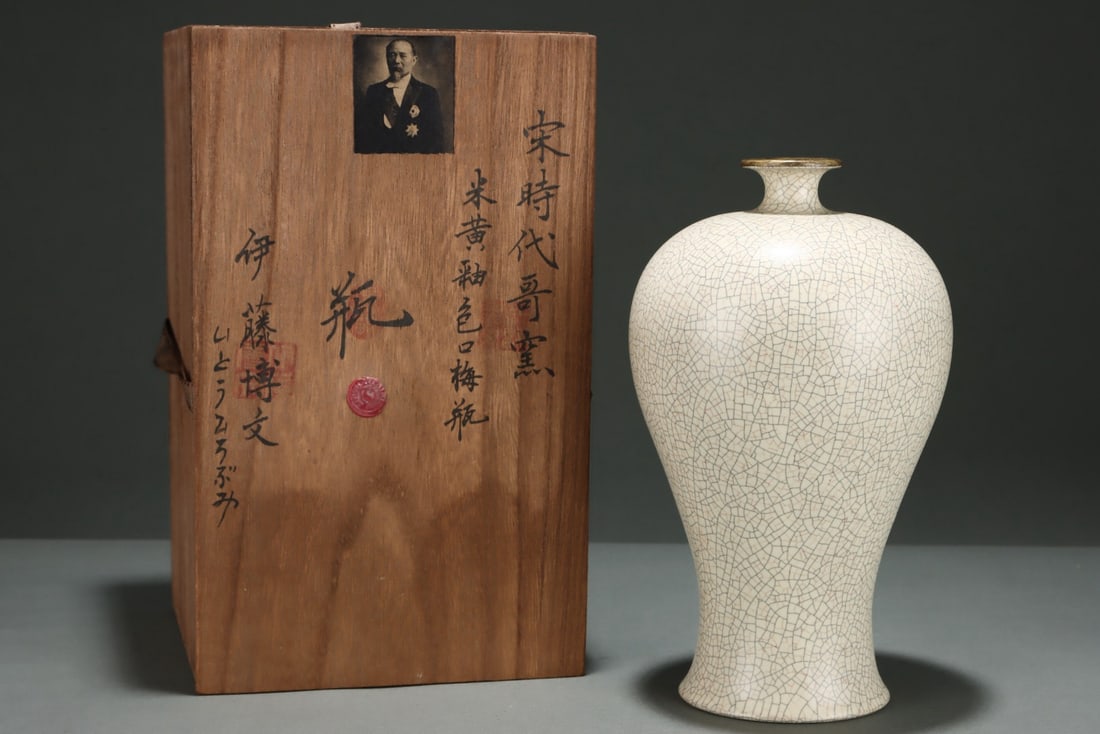 宋時代哥窯
米黄釉色口梅瓶
瓶
伊藤博文
いとうひろぶみ